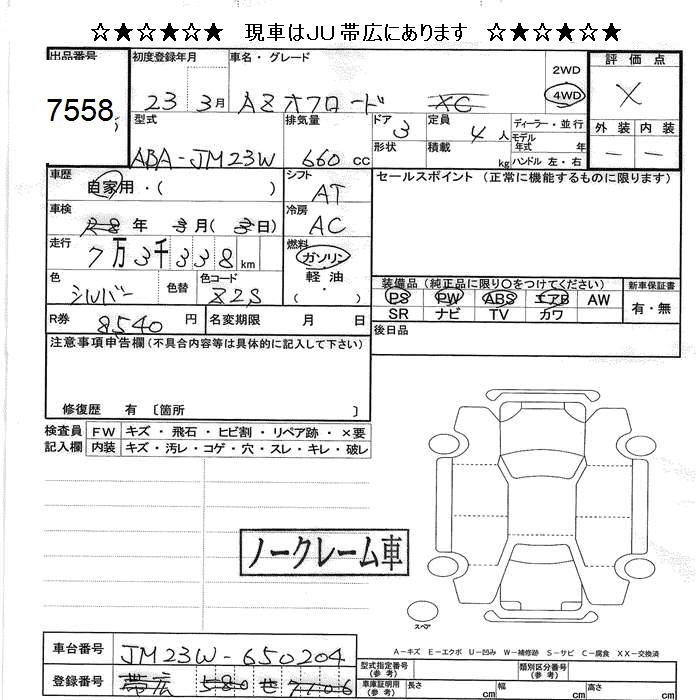 ☆★☆★☆★ 現車はJU帯広にあります ☆★☆★☆★
出品番号 初度登録年月 車名・グレード 評価点
7558 23 3月 AZオフロード XC 2WD 4WD X
型式 排気量 ドア 定員 ディーラー・並行 外装 内装
ABA-JM23W 660cc 3 4人 モデル年式 年 － －
形状 積載 kg ハンドル 左・右
車歴 シフト セールスポイント (正常に機能するものに限ります)
自家用・( ) AT
車検 冷房
年 月( 日) AC
走行 燃料
7万3千338km ガソリン
色 色替 色コード 軽油
シルバー Z2S ( ・ )
装備品 (純正品に限り○をつけてください) 新車保証書
PS PW ABS エアB AW 有・無
SR ナビ TV カワ
R券 8540円 名変期限 月 日 後日品
注意事項申告欄 (不具合内容等は具体的に記入して下さい)
修復歴 有 〔箇所 〕
検査員 FW キズ・飛石・ヒビ割・リペア跡・×要
記入欄 内装 キズ・汚レ・コゲ・穴・スレ・キレ・破レ
ノークレーム車
スペア
A－キズ E－エクボ U－凹み W－補修跡 S－サビ C－腐食 XX－交換済
車台番号 JM23W-650204 型式指定番号(参考) 類別区分番号(参考)
登録番号 帯広 580 せ 7106 車庫証明用(参考) 長さ cm 幅 cm 高さ cm